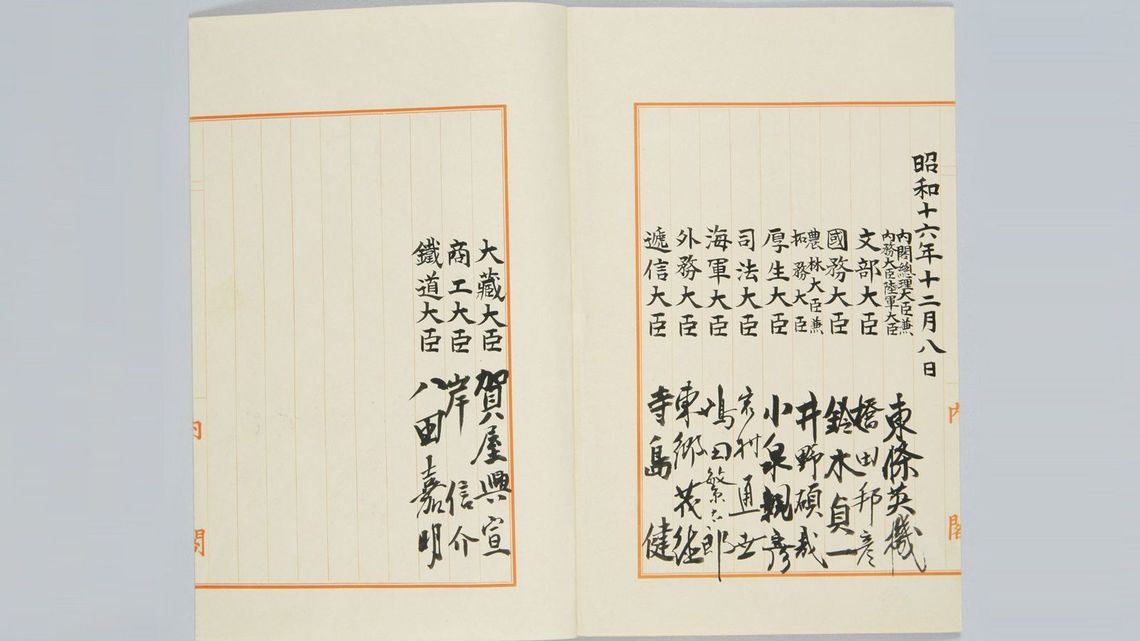 昭和十六年十二月八日
內閣總理大臣兼
內務大臣陸軍大臣 東條英機
文部大臣 橋田邦彦
國務大臣 鈴木貞一
農林大臣兼
拓務大臣 井野碩哉
厚生大臣 小泉親彥
司法大臣 岩村通世
海軍大臣 嶋田繁太郎
外務大臣 東郷茂徳
遞信大臣 寺島健
大藏大臣 賀屋興宣
商工大臣 岸信介
鐵道大臣 八田嘉明
內閣